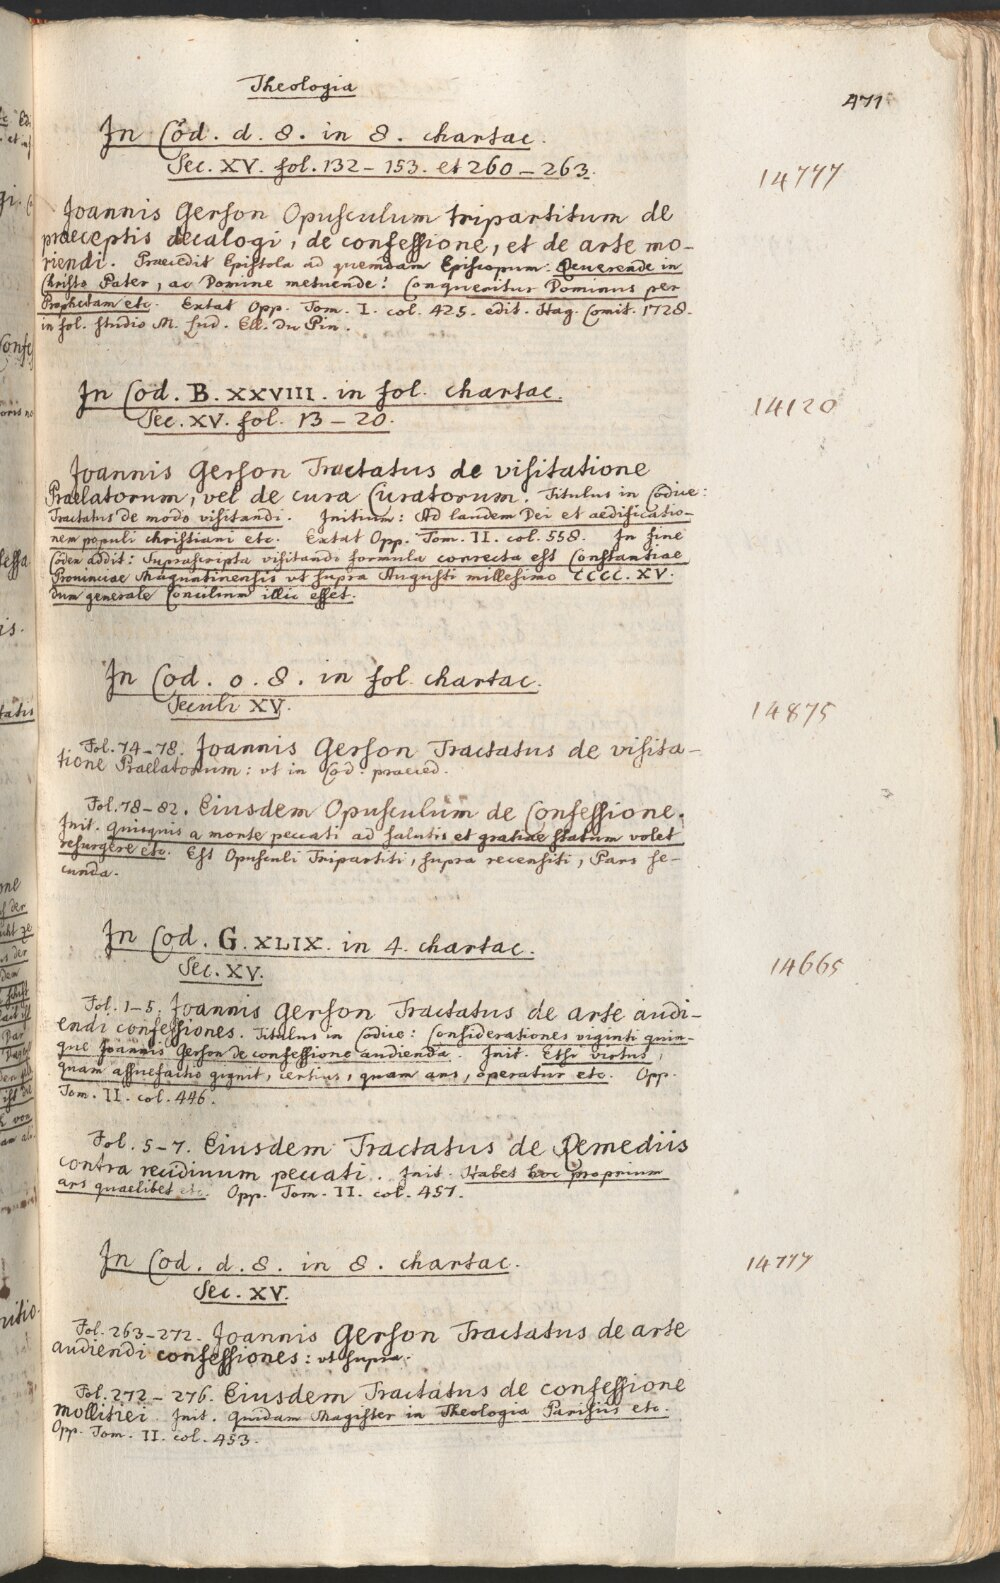 Theologia
471
In Cod. d. 8. in 8. chartac.
Sec. XV. fol. 132 – 153. et 260 – 263.
14777
Joannis Gerson Opusculum tripartitum de
praeceptis decalogi, de confessione, et de arte mo-
riendi. Praecedit Epistola ad quemdam Episcopum: Reuerende in
Christo Pater, ac Domine metuende! Conqueritur Dominus per
Prophetam etc. Extat Opp. Tom. I. col. 425. edit. Hag. Comit. 1728.
in fol. studio M. Lud. Ell. du Pin.
In Cod. B. XXVIII. in fol. chartac.
Sec. XV. fol. 13 – 20.
14120
Joannis Gerson Tractatus de visitatione
Praelatorum, vel de cura Curatorum. Titulus in Codice:
Tractatus de modo visitandi. Initium: Ad laudem Dei et aedificatio-
nem populi christiani etc. Extat Opp. Tom. II. col. 558. In fine
Codex addit: Suprascripta visitandi formula correcta est Constantiae
Prouinciae Maguntinensis vt supra Augusti millesimo CCCC. XV.
dum generale Concilium illic esset.
In Cod. o. 8. in fol. chartac.
Seculi XV.
14875
Fol. 74–78. Joannis Gerson Tractatus de visita-
tione Praelatorum: vt in Cod. praeced.
Fol. 78–82. Eiusdem Opusculum de Confessione.
Init. Quisquis a morte peccati ad salutis et gratiae statum volet
resurgere etc. Est Opusculi Tripartiti, supra recensiti, Pars se-
cunda.
In Cod. G. XLIX. in 4. chartac.
Sec. XV.
14665
Fol. 1–5. Joannis Gerson Tractatus de arte audi-
endi confessiones. Titulus in Codice: Considerationes viginti quin-
que Joannis Gerson de confessione audienda. Init. Etsi virtus,
quam assuefactio gignit, certius, quam ars, operatur etc. Opp.
Tom. II. col. 446.
Fol. 5–7. Eiusdem Tractatus de Remediis
contra recidiuum peccati. Init. Habet hoc proprium
ars quaelibet etc. Opp. Tom. II. col. 457.
In Cod. d. 8. in 8. chartac.
Sec. XV.
14777
Fol. 263–272. Joannis Gerson Tractatus de arte
audiendi confessiones: vt supra.
Fol. 272 – 276. Eiusdem Tractatus de confessione
mollitiei. Init. Quidam Magister in Theologia Parisiis etc.
Opp. Tom. II. col. 453.